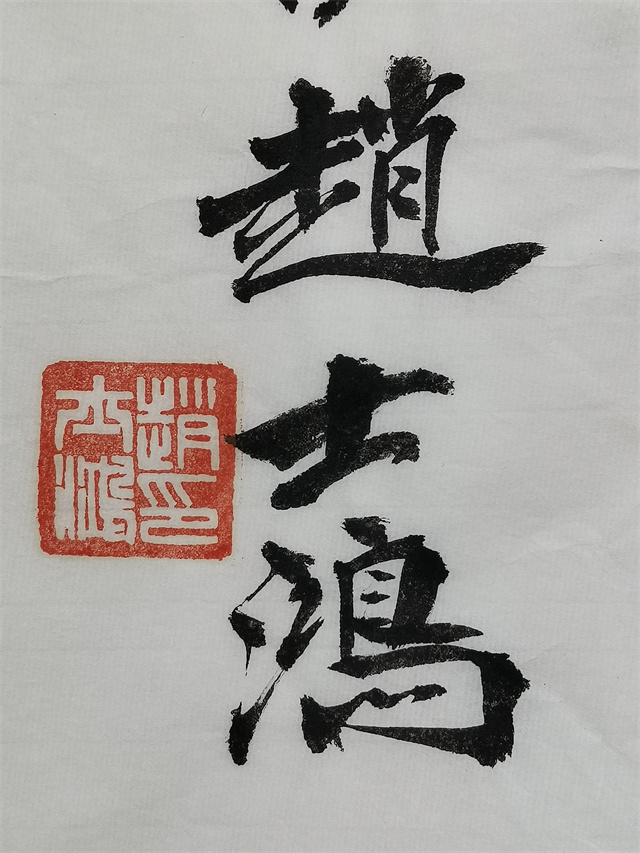 趙士鴻
趙印
士鴻